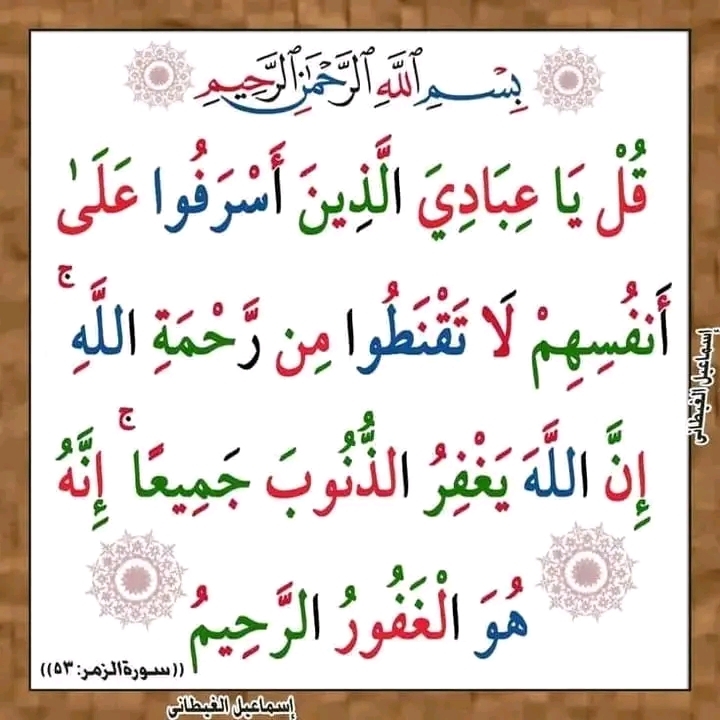 بِسْمِ ٱللَّهِ ٱلرَّحْمَٰنِ ٱلرَّحِيمِ
قُلْ يَا عِبَادِيَ الَّذِينَ أَسْرَفُوا عَلَىٰ
أَنفُسِهِمْ لَا تَقْنَطُوا مِن رَّحْمَةِ اللَّهِ ۚ
إِنَّ اللَّهَ يَغْفِرُ الذُّنُوبَ جَمِيعًا ۚ إِنَّهُ
هُوَ الْغَفُورُ الرَّحِيمُ
((سورة الزمر: ٥٣))
إسماعيل الغيطانى
إسماعيل الغيطانى